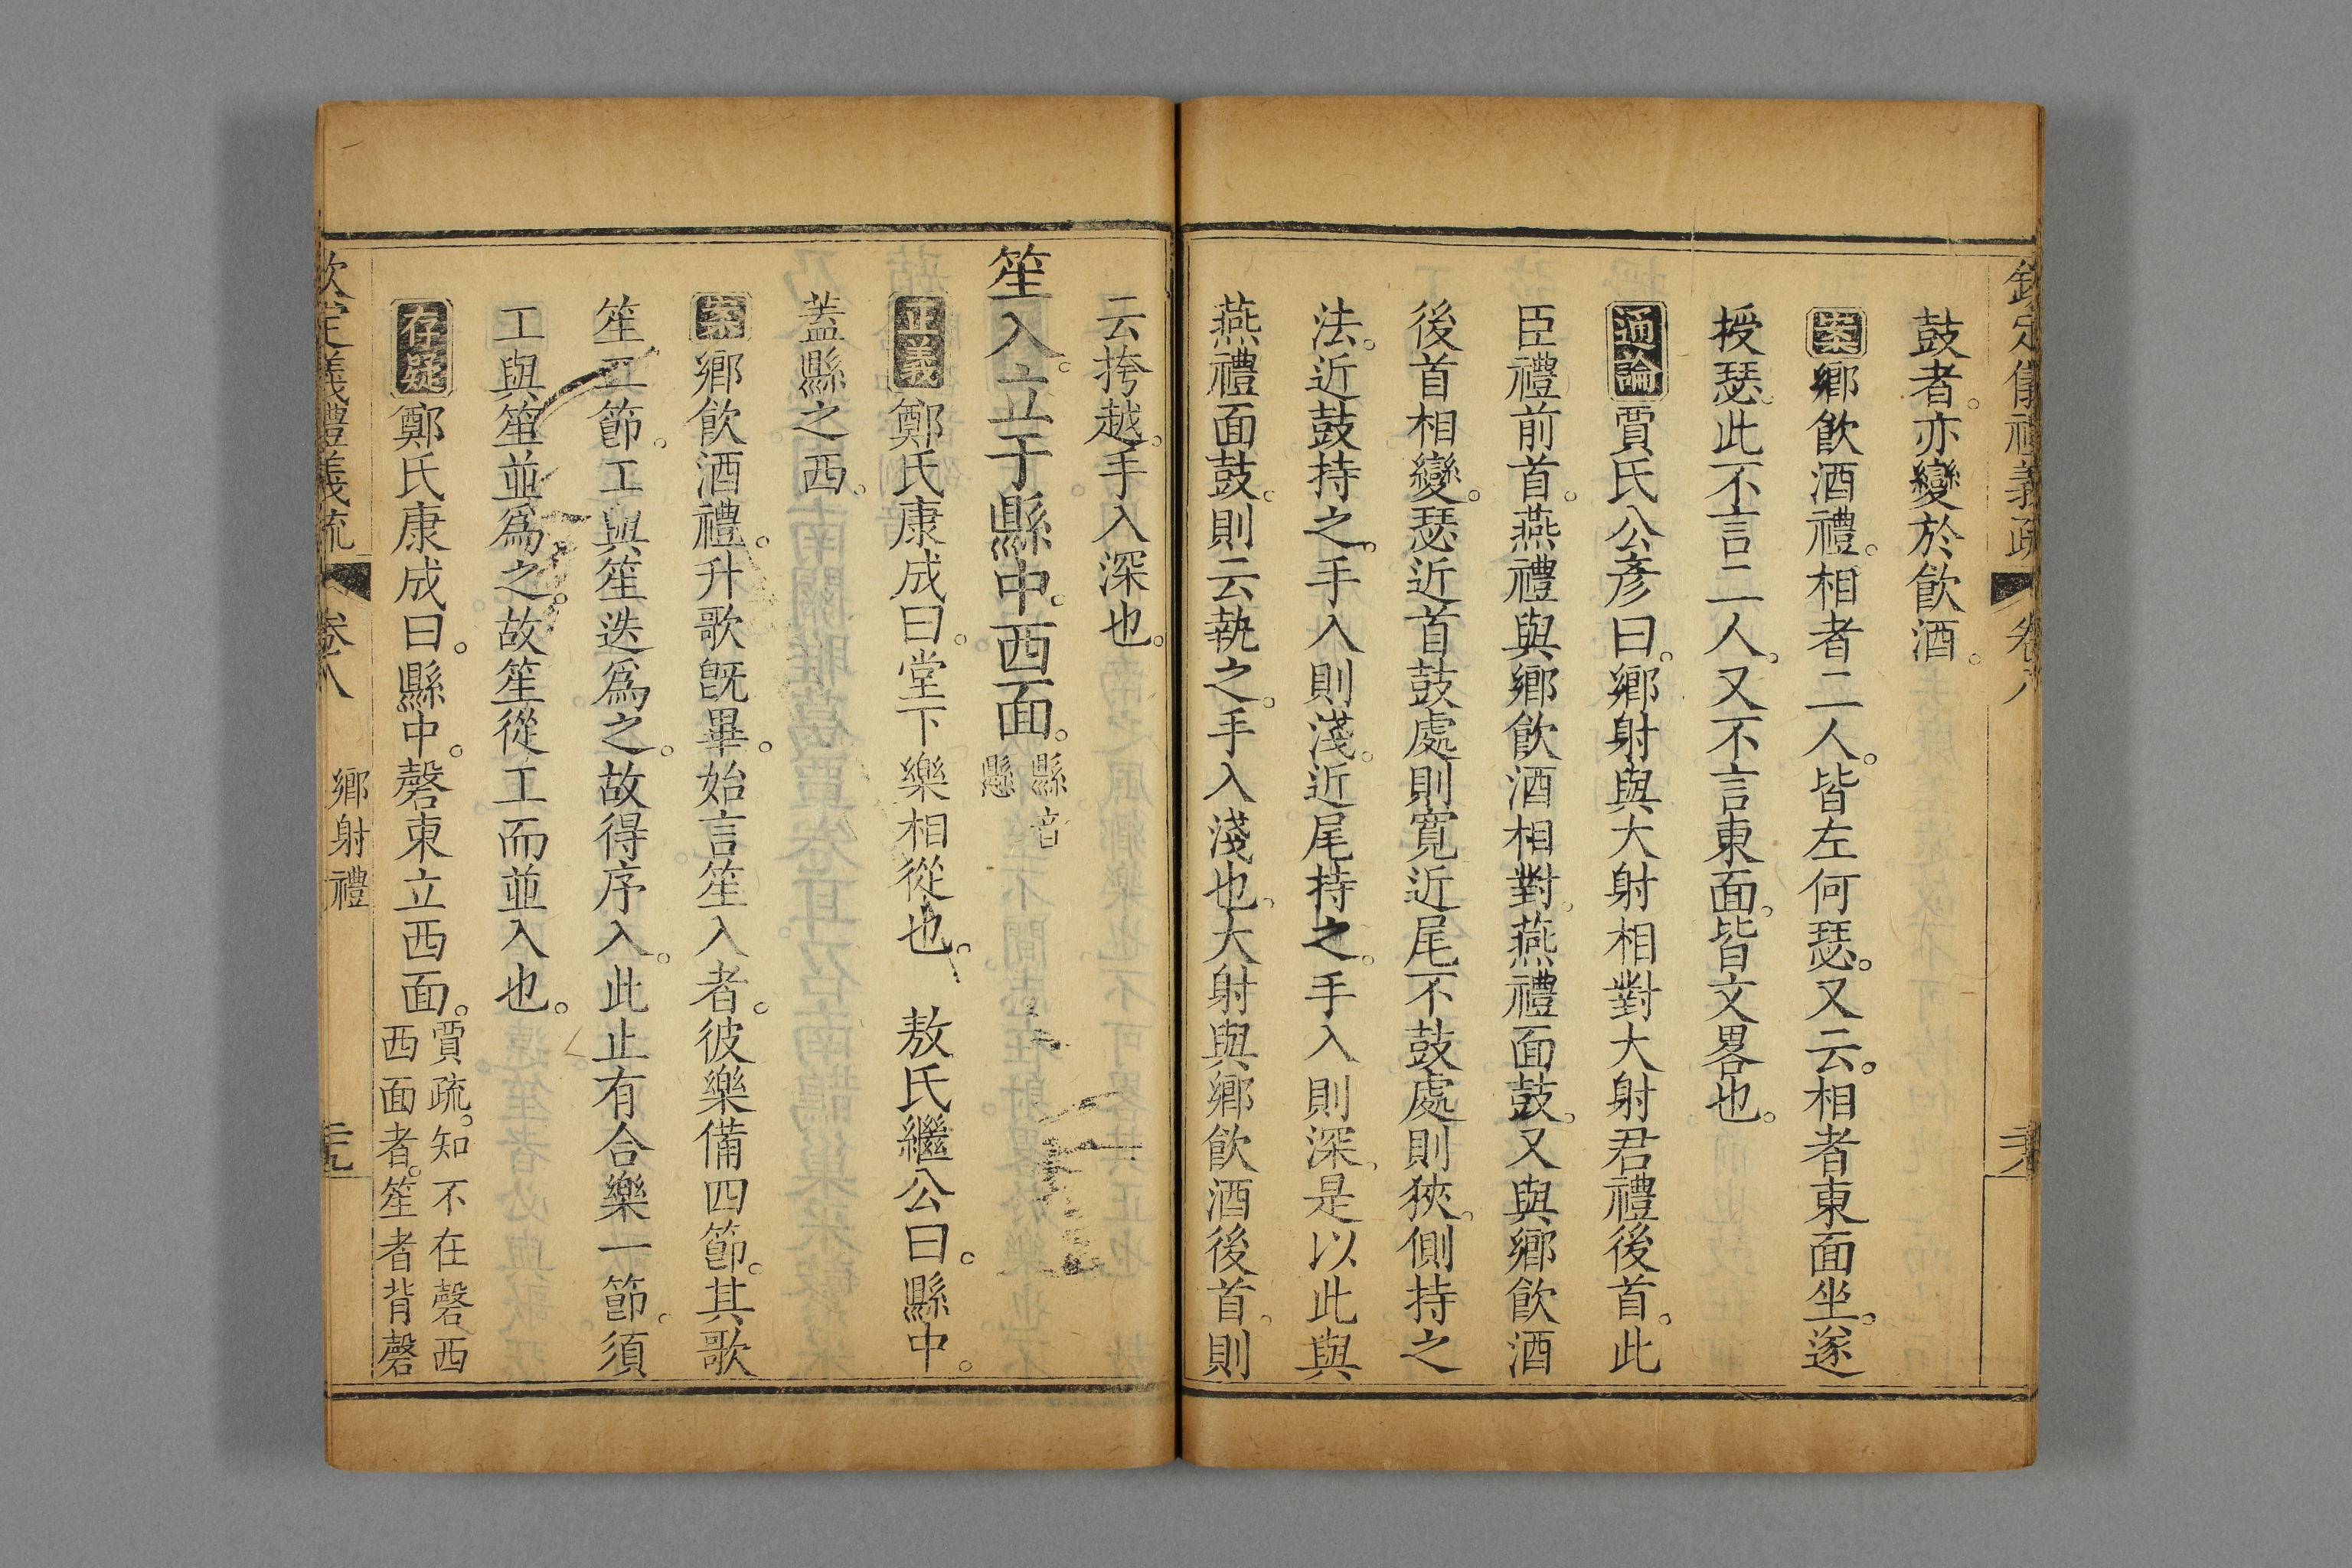 欽定儀禮義疏 卷八
鼓者。亦變於飲酒。
案鄉飲酒禮。相者二人。皆左何瑟。又云。相者東面坐。遂
授瑟。此不言二人。又不言東面。皆文畧也。
通論賈氏公彥曰。鄉射與大射相對。大射君禮後首。此
臣禮前首。燕禮與鄉飲酒相對。燕禮面鼓。又與鄉飲酒
後首相變。瑟近首鼓處則寬。近尾不鼓處則狹。側持之
法。近鼓持之。手入則淺。近尾持之。手入則深。是以此與
燕禮面鼓。則云執之。手入淺也。大射與鄉飲酒後首。則
云挎越。手入深也。
笙入。立于縣中。西面。縣音
懸
正義鄭氏康成曰。堂下樂相從也。 敖氏繼公曰。縣中。
蓋縣之西。
案鄉飲酒禮。升歌旣畢。始言笙入者。彼樂備四節。其歌
笙二節。工與笙迭爲之。故得序入。此止有合樂一節。須
工與笙並爲之。故笙從工而並入也。
存疑鄭氏康成曰。縣中。磬東立西面。賈疏。知不在磬西
西面者。笙者背磬
欽定儀禮義疏 卷八 鄉射禮